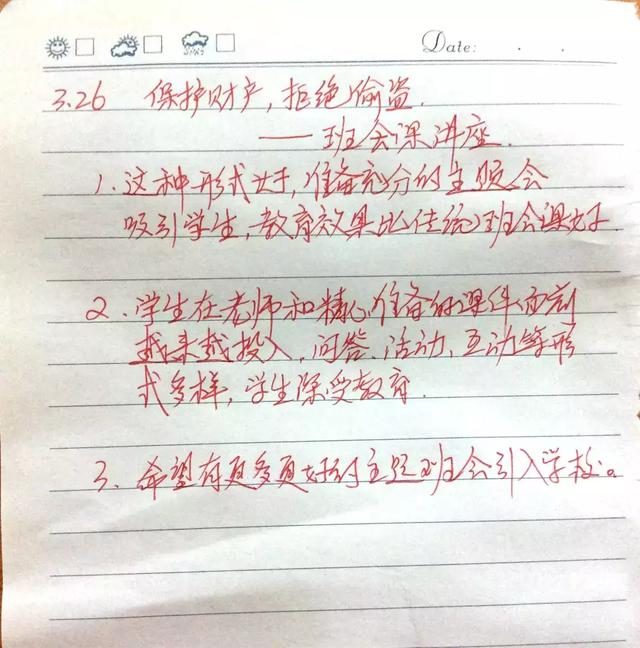 Date:
3.26 保护财产，拒绝偷盗.
——班会课讲座.
1.这种形式好，准备充分的主题会
吸引学生，教育效果比传统班会课好.
2.学生在老师和精心准备的课件面前
越来越投入，问答、活动、互动等形
式多样，学生深受教育.
3、希望有更多更好的主题班会引入学校。